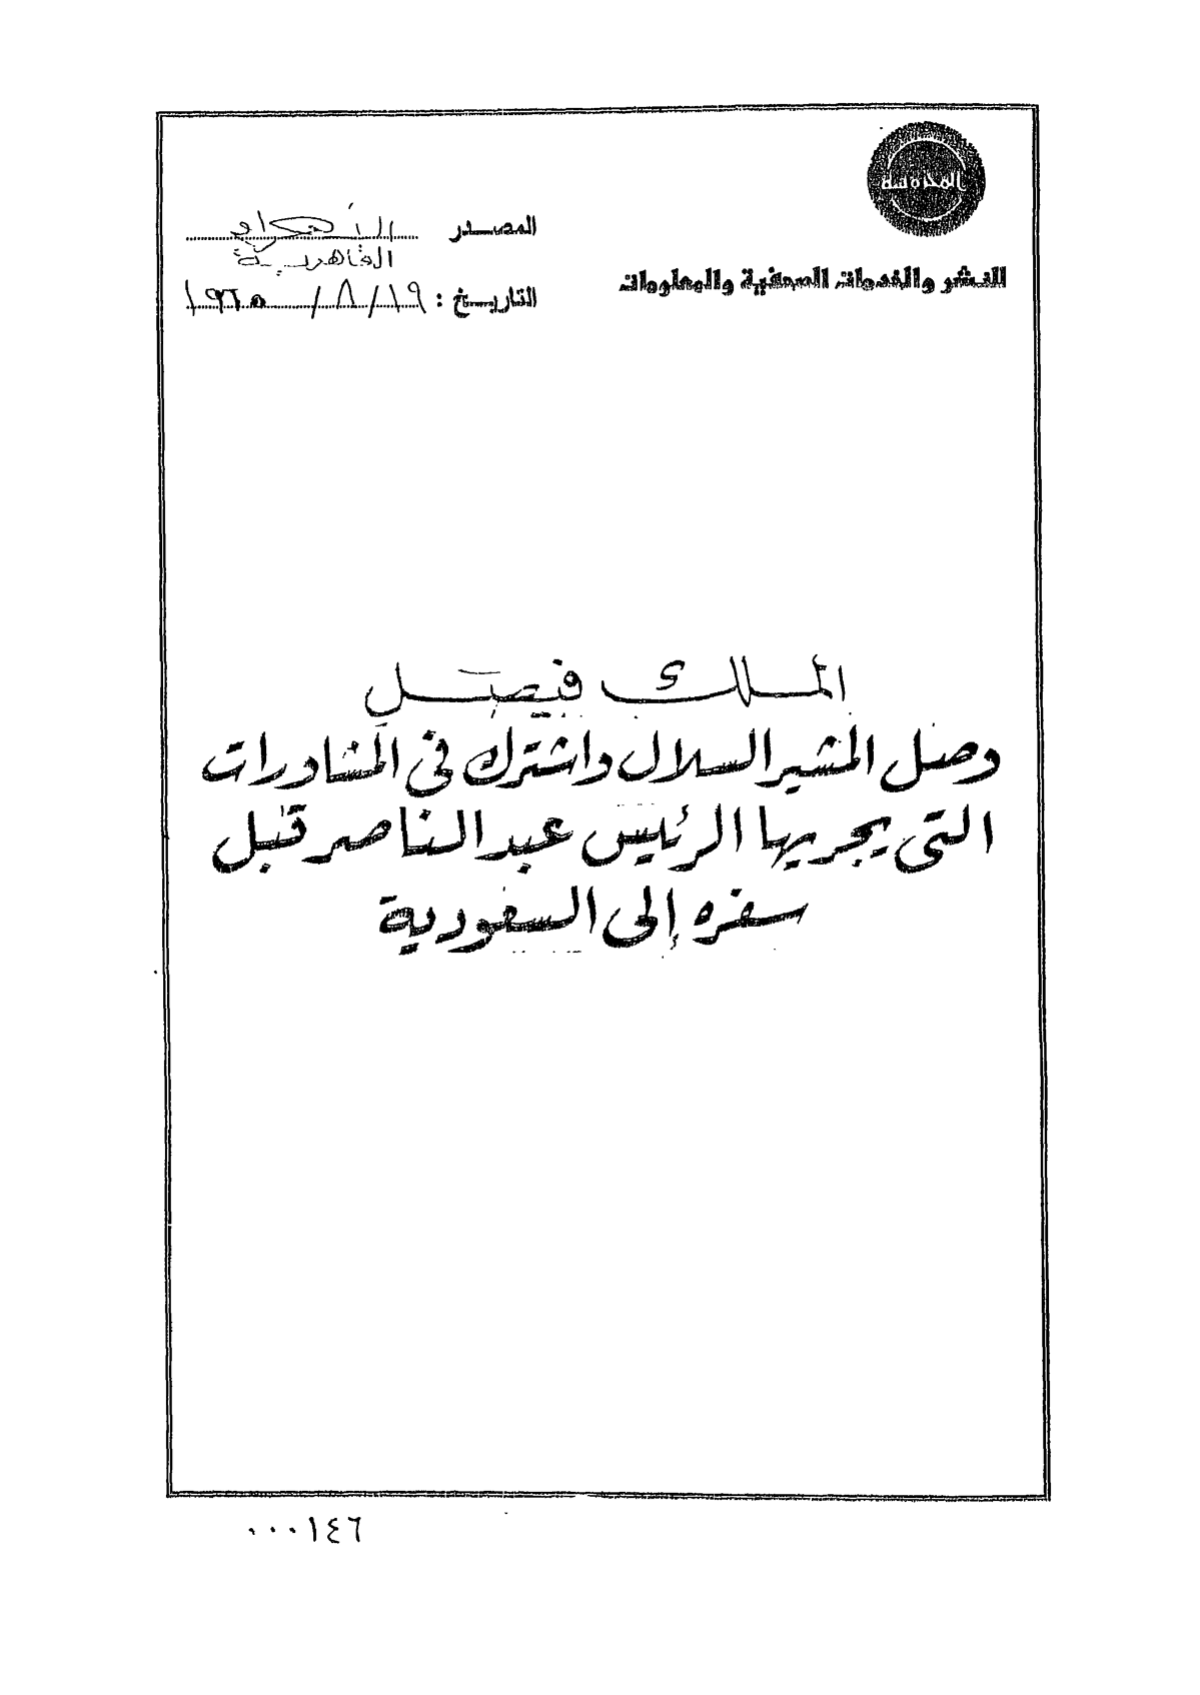 المحروسة
للنشر والخدمات الصحفية والمعلومات
المصدر
القاهرية
التاريخ : ١٩ / ٨ / ١٩٦٥
الملك فيصل
وصل المشير السلال واشترك في المشاورات
التى يجريها الرئيس عبد الناصر قبل
سفره إلى السعودية
٠٠٠١٤٦